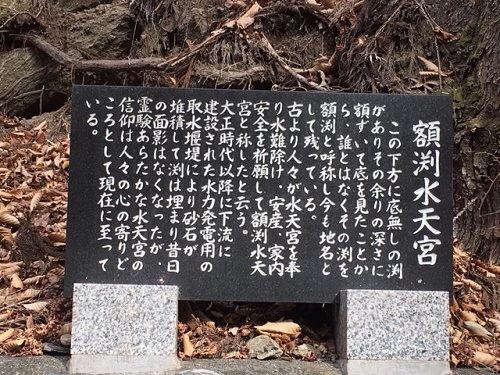 額渕水天宮
この下方に底無しの渕
がありその余りの深さに
額ずいて底を見たことか
ら、誰とはなくその渕を
額渕と呼称し今も地名と
して残っている。
古より人々が水天宮を奉
り水難除け、安産、家内
安全を祈願して額渕水天
宮と称したと云う。
大正時代以降に下流に
建設された水力発電用の
取水堰堤により砂石が
堆積して渕は埋まり昔日
の面影はなくなったが、
霊験あらたかな水天宮の
信仰は人々の心の寄りど
ころとして現在に至って
いる。